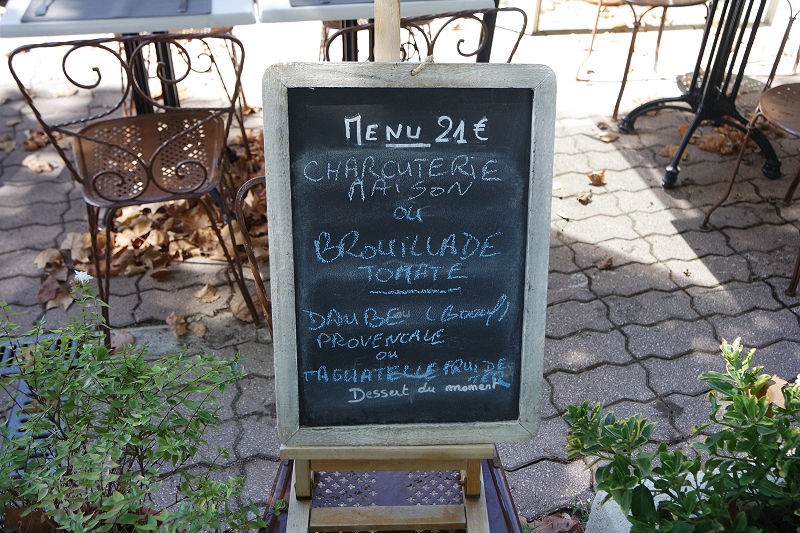 MENU 21€
CHARCUTERIE
MAISON
ou
BROUILLADE
TOMATE
DAUBE (BOEUF)
PROVENCALE
ou
TAGLIATELLE FRUI DE
MER
Dessert du moment